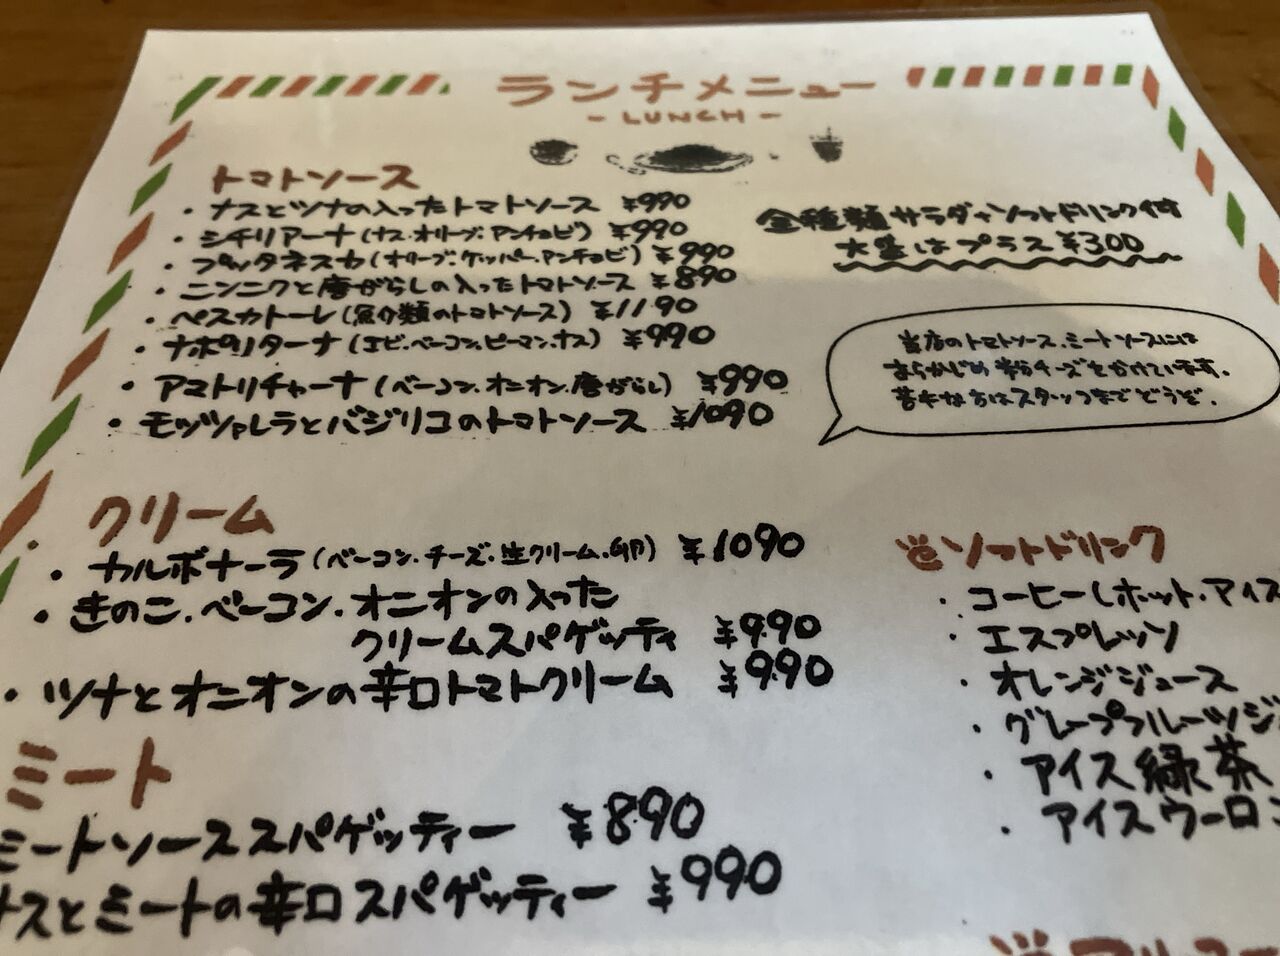 ランチメニュー
- LUNCH -
トマトソース
・ナスとツナの入ったトマトソース ¥990
・シチリアーナ(ナス・オリーブ・アンチョビ) ¥990
・プッタネスカ(オリーブ・ケッパー・アンチョビ) ¥990
・ニンニクと唐がらしの入ったトマトソース ¥890
・ペスカトーレ(魚介類のトマトソース) ¥1190
・ナポリターナ(エビ・ベーコン・ピーマン・ナス) ¥990
・アマトリチャーナ(ベーコン・オニオン・唐がらし) ¥990
・モッツァレラとバジリコのトマトソース ¥1090
全種類サラダ+ソフトドリンク付
大盛はプラス¥300
当店のトマトソース、ミートソースには
あらかじめ粉チーズをかけています。
苦手な方はスタッフまでどうぞ。
クリーム
・カルボナーラ(ベーコン・チーズ・生クリーム・卵) ¥1090
・きのこ、ベーコン、オニオンの入った
クリームスパゲッティ ¥990
・ツナとオニオンの辛口トマトクリーム ¥990
ミート
ミートソーススパゲッティー ¥890
ナスとミートの辛口スパゲッティー ¥990
ソフトドリンク
・コーヒー(ホット・アイス
・エスプレッソ
・オレンジジュース
・グレープフルーツジ
・アイス緑茶
・アイスウーロ